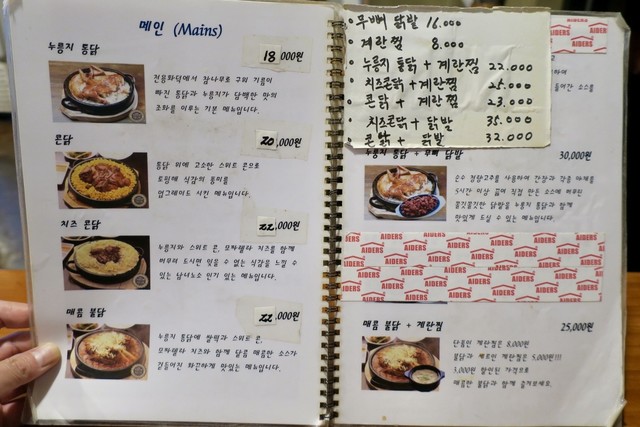 메인 (Mains)
누룽지 통닭
18,000원
전용화덕에서 참나무로 구워 기름이
빠진 통닭과 누룽지가 담백한 맛의
조화를 이루는 기본 메뉴입니다.
콘닭
20,000원
통닭 위에 고소한 스위트 콘으로
토핑해 식감의 풍미를
업그레이드 시킨 메뉴입니다.
치즈 콘닭
22,000원
누룽지와 스위트 콘, 모짜렐라 치즈를 함께
버무려 드시면 잊을 수 없는 식감을 느낄 수
있는 남녀노소 인기 있는 메뉴입니다.
매콤 불닭
22,000원
누룽지 통닭에 쌀떡과 스위트 콘,
모짜렐라 치즈와 함께 달콤 매콤한 소스가
곁들어진 화끈하게 맛있는 메뉴입니다.
무뼈 닭발 16.000
계란찜 8.000
누룽지 통닭 + 계란찜 22.000
치즈콘닭 + 계란찜 25.000
콘닭 + 계란찜 23.000
치즈콘닭 + 닭발 35.000
콘닭 + 닭발 32.000
AIDERS
누룽지 통닭 + 무뼈 닭발
30,000원
순수 정량고추를 사용하여 간장과 각종 야채를
5시간 이상 끓여 직접 만든 소스에 버무린
쫄깃쫄깃한 닭발을 누룽지 통닭과 함께
맛있게 드실 수 있는 메뉴입니다.
AIDERS AIDERS AIDERS AIDERS
매콤 불닭 + 계란찜
25,000원
단품인 계란찜은 8,000원
불닭과 세트인 계란찜은 5,000원!!!
3,000원 할인된 가격으로
매콤한 불닭과 함께 즐겨보세요.